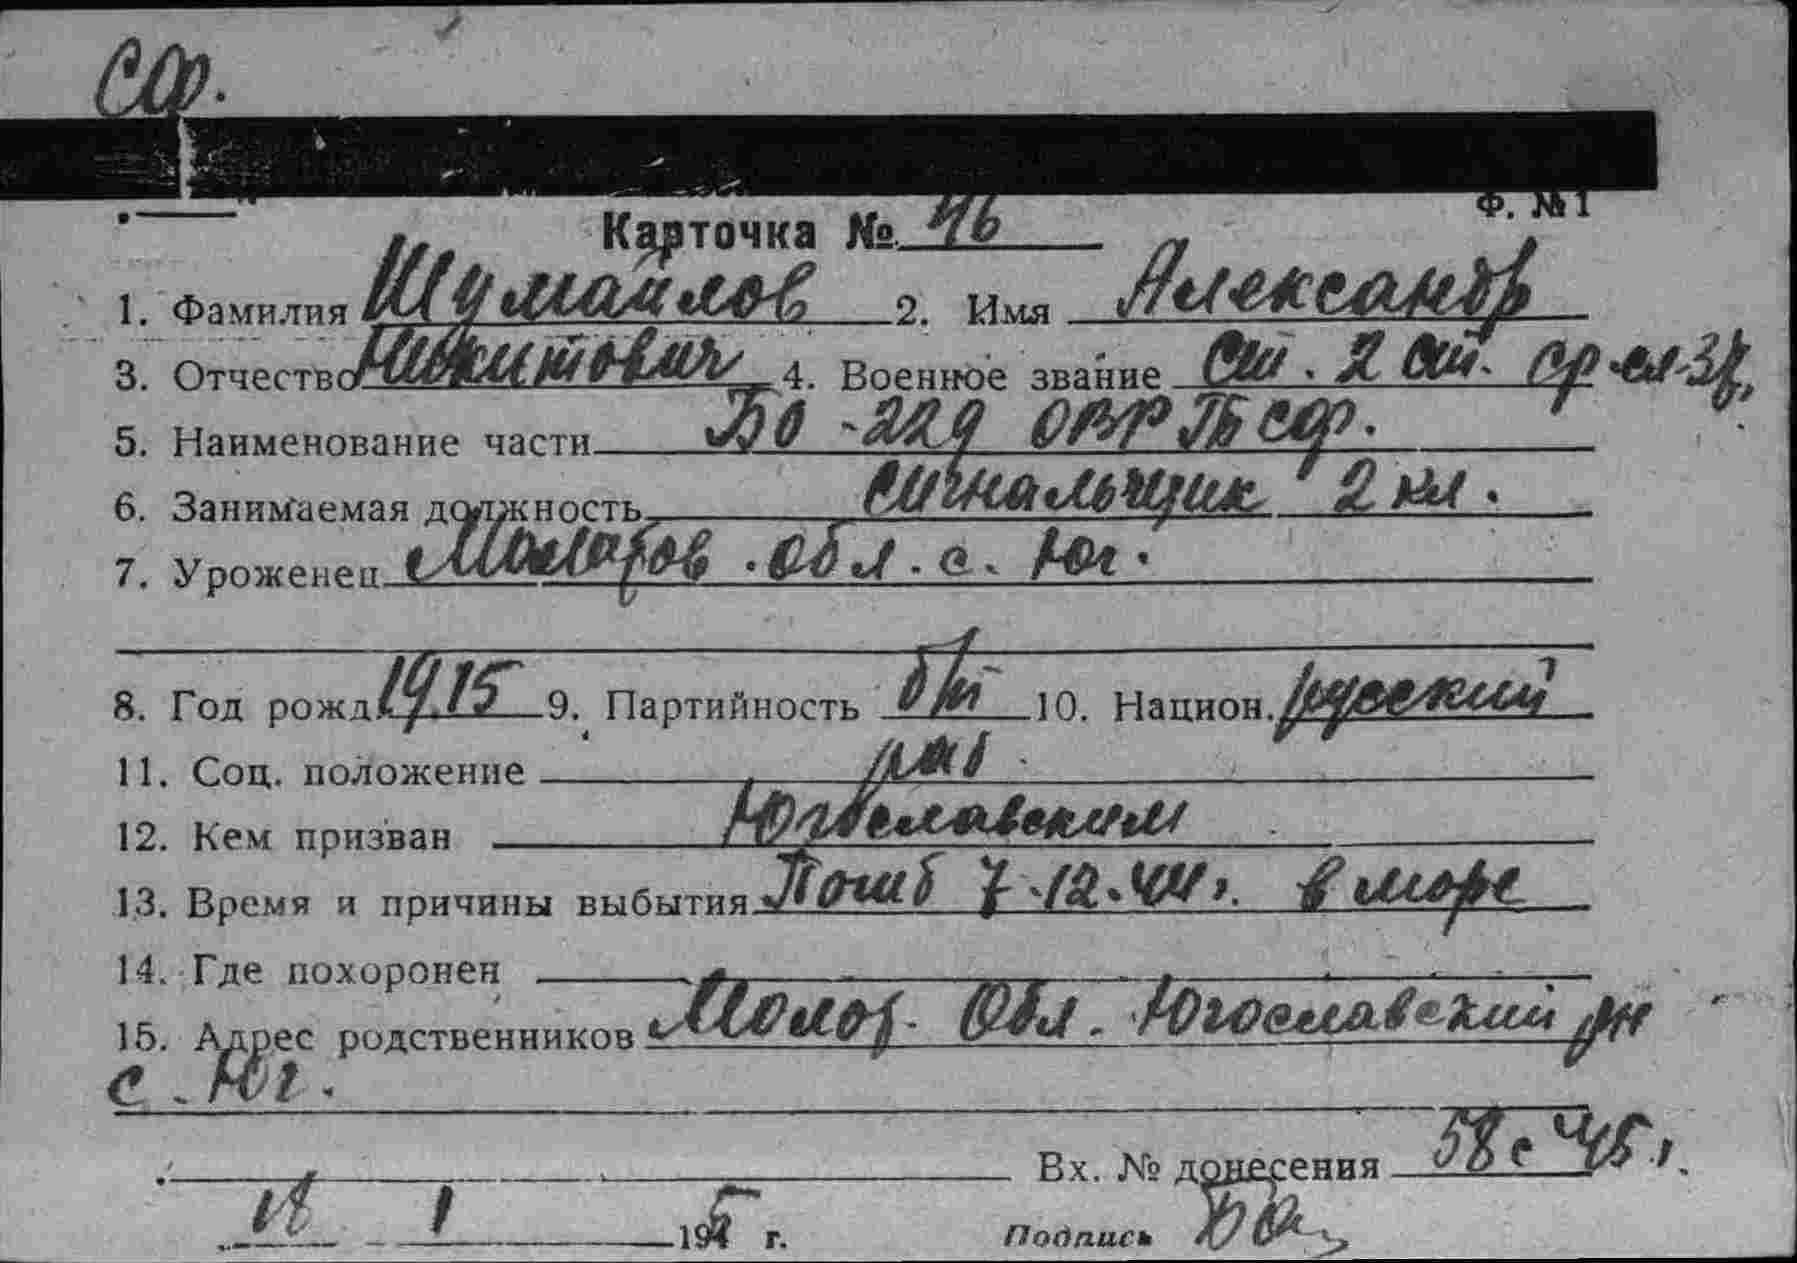 СФ.
Ф. №1
Карточка № 46
1. Фамилия Шумайлов 2. Имя Александр
3. Отчество Никитович 4. Военное звание Ст. 2 ст.
5. Наименование части БО ОВР СФ.
6. Занимаемая должность сигнальщик 2 кл.
7. Уроженец Молотов. обл. с. Юг.
8. Год рожд. 1915 9. Партийность б/п 10. Национ. русский
11. Соц. положение
12. Кем призван Югославским
13. Время и причины выбытия Погиб 7.12.44 г. в море
14. Где похоронен
15. Адрес родственников Молот. Обл. Югославский рн
с. Юг.
Вх. № донесения 58с 45 г.
1 1945 г. Подпись